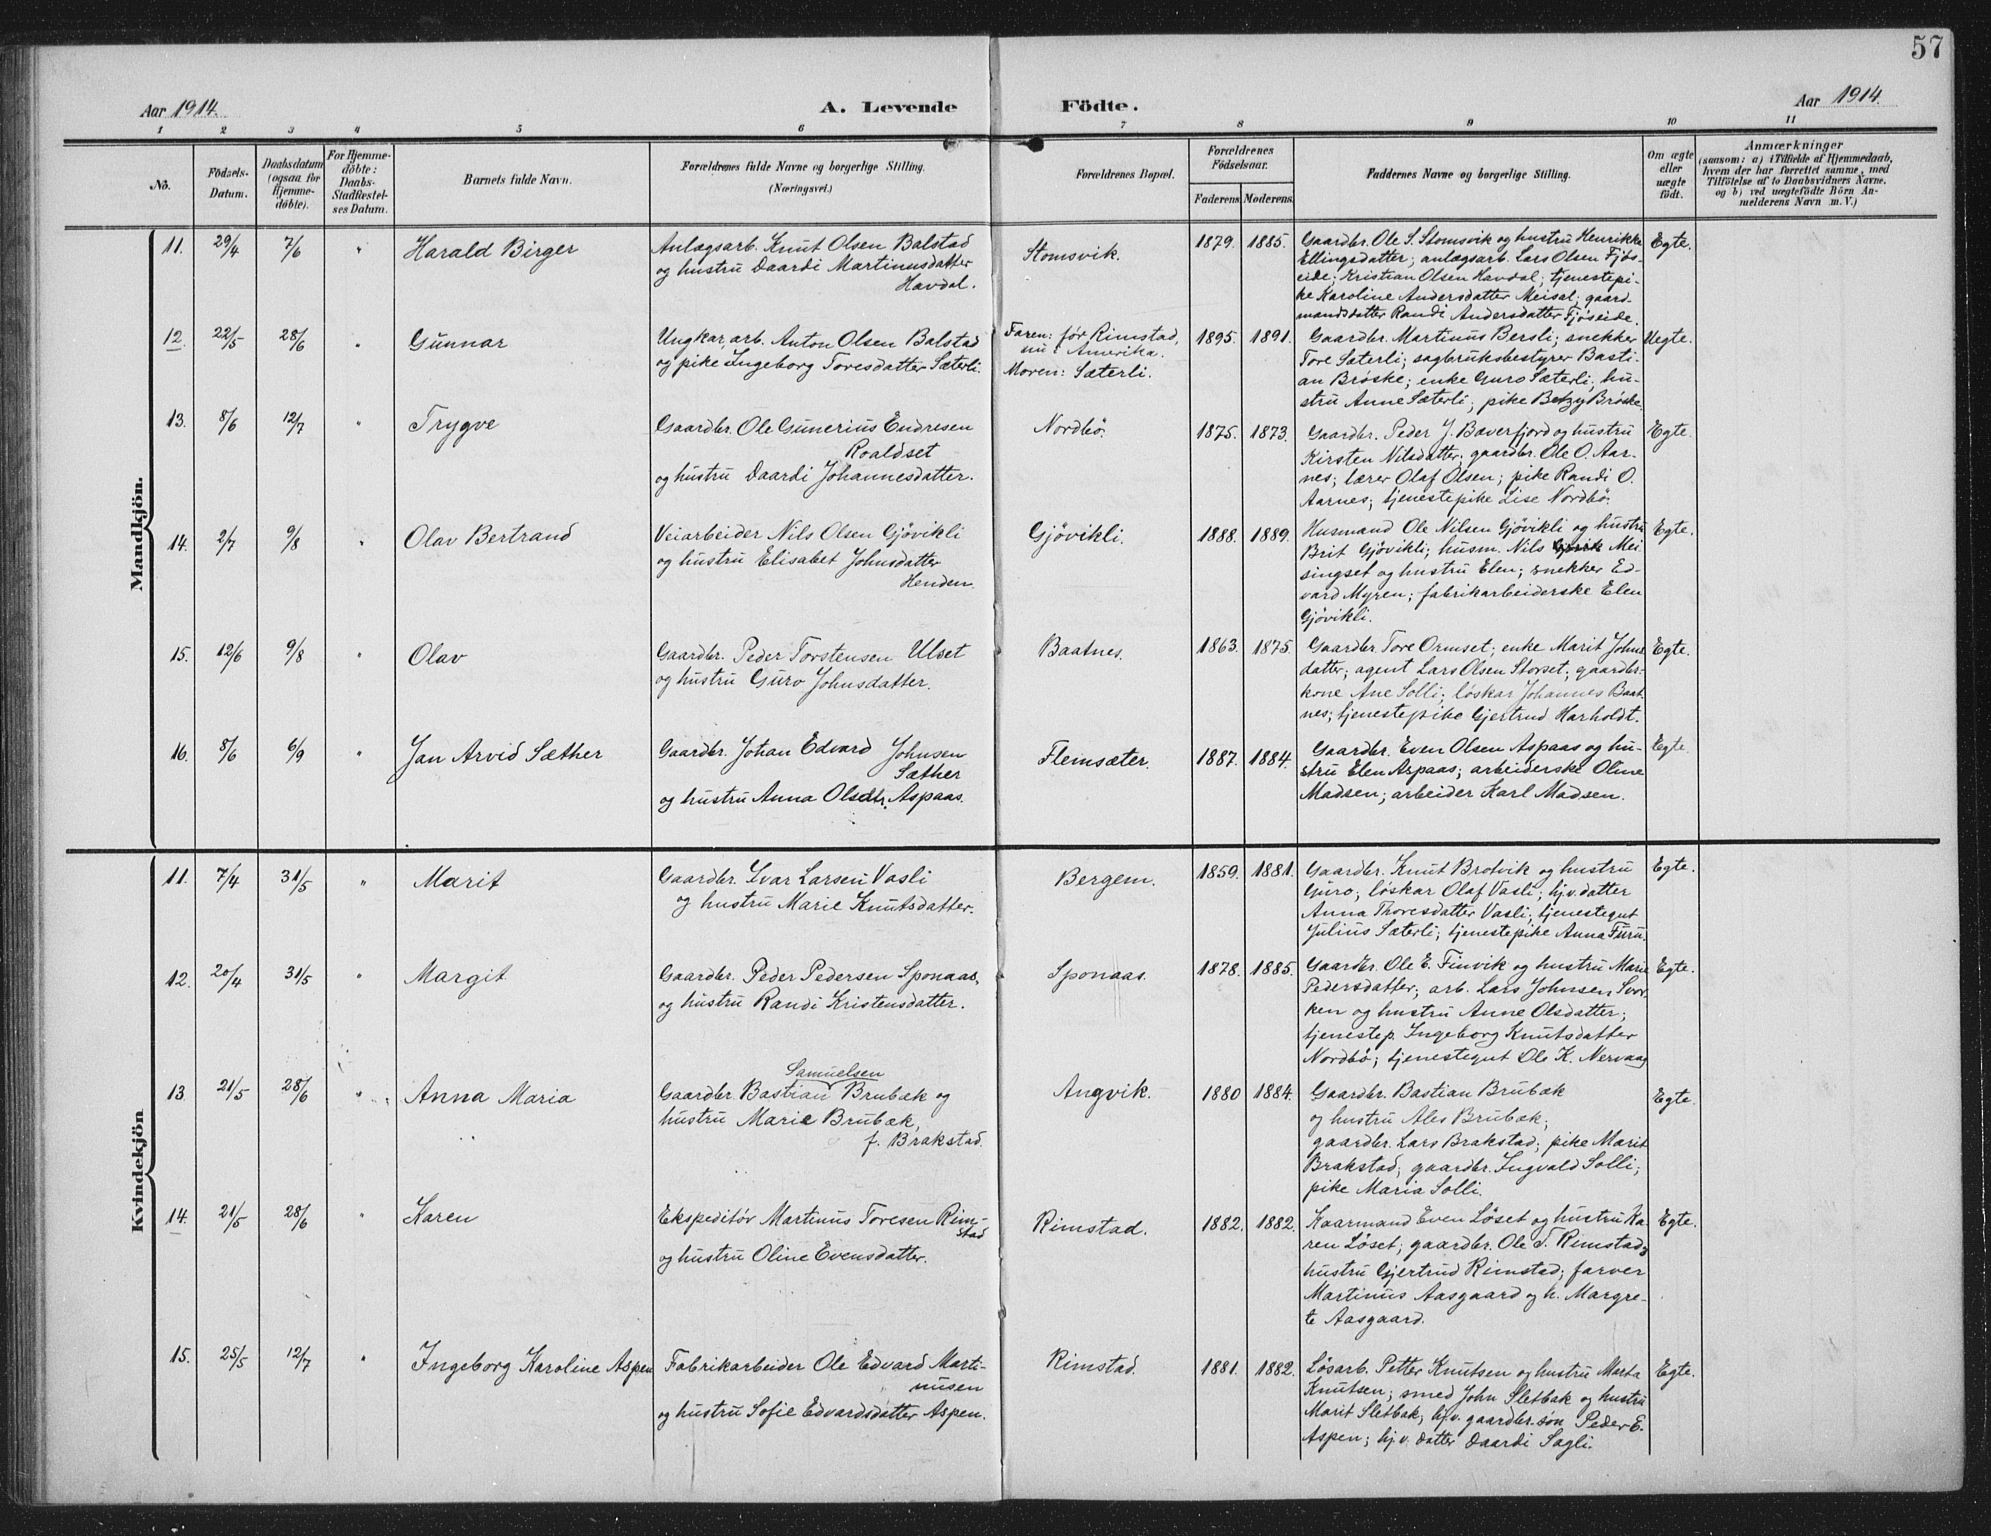 57
Aar 1914.
A. Levende Födte.
Aar 1914.
1 2 3 4 5 6 7 8 9 10 11
No.
Födsels-Datum.
Daabsdatum (ogsaa for Hjemme-döbte).
For Hjemme-döbte: Daabs-Stadfæstel-ses Datum.
Barnets fulde Navn.
Forældrenes fulde Navne og borgerlige Stilling. (Næringsvei.)
Forældrenes Bopæl.
Forældrenes Födselsaar.
Faderens Moderens
Faddernes Navne og borgerlige Stilling.
Om ægte eller uægte födt.
Anmærkninger
(saasom: a) i Tilfælde af Hjemmedaab,
hvem der har forrettet samme, med
Tilföielse af to Daabsvidners Navne,
og b) ved uægtefödte Börn An-
melderens Navn m. V.)
Mandkjön.
11. 29/4 7/6 " Harald Birger
Anlægsarb. Knut Olsen Balstad
og hustru Daardi Martinusdatter
Havdal.
Stomsvik.
1879. 1885.
Gaardbr. Ole S. Stomsvik og hustru Henrikke
Ellingsdatter; anlægsarb. Lars Olsen Fjös-
eide; Kristian Olsen Havdal; tjenestepi-
ke Karoline Andersdatter Meisal; gaard-
mandsdatter Randi Andersdatter Fjöseide.
Egte.
12. 22/5 28/6 " Gunnar
Ungkar, arb. Anton Olsen Balstad
og pike Ingeborg Toresdatter Sæterli.
Faren: för Rimstad,
nu i Amerika.
Moren: Sæterli.
1895. 1891.
Gaardbr. Martinus Bersli; snekker
Tore Sæterli; sagbruksbestyrer Basti-
an Bröske; enke Guro Sæterli; hu-
stru Anne Sæterli; pike Betzy Bröske.
Uegte.
13. 8/6 12/7 " Trygve
Gaardbr. Ole Gunerius Endresen
Roaldset
og hustru Daardi Johannesdatter.
Nordbö.
1875. 1873.
Gaardbr. Peder J. Bæverfjord og hustru
Kirsten Nilsdatter; gaardbr. Ole O. Aar-
nes; lærer Olaf Olsen; pike Randi O.
Aarnes; tjenestepike Lise Nordbö.
Egte.
14. 2/7 9/8 " Olav Bertrand
Veiarbeider Nils Olsen Gjövikli
og hustru Elisabet Johnsdatter
Henden.
Gjövikli.
1888. 1889.
Husmand Ole Nilsen Gjövikli og hustru
Brit Gjövikli; husm. Nils Mei
singset og hustru Elen; snekker Ed-
vard Myren; fabrikarbeiderske Elen
Gjövikli.
Egte.
15. 12/6 9/8 " Olav
Gaardbr. Peder Torstensen Ulset
og hustru Guro Johnsdatter.
Baatnes.
1863. 1875.
Gaardbr. Tore Ormset; enke Marit Johns-
datter; agent Lars Olsen Storset; gaardbr-
kone Ane Solli; löskar Johannes Baat-
nes; tjenestepike Gjertrud Harholdt.
Egte.
16. 8/6 6/9 " Jan Arvid Sæther
Gaardbr. Johan Edvard Johnsen
Sæther
og hustru Anna Olsdtr. Aspaas.
Flemsæter.
1887. 1884.
Gaardbr. Even Olsen Aspaas og hu-
stru Elen Aspaas; arbeiderske Oline
Madsen; arbeider Karl Madsen.
Egte.
Kvindekjön
11. 7/4 31/5 " Marit
Gaardbr. Ivar Larsen Vasli
og hustru Marie Knutsdatter.
Bergem.
1859. 1881.
Gaardbr. Knut Brotvik og hustru
Guro; löskar Olaf Vasli; hjv. datter
Anna Thoresdatter Vasli; tjenestegut
Julius Sæterli; tjenestepike Anna Furu.
Egte.
12. 20/4 31/5 " Margit
Gaardbr. Peder Pedersen Sponaas,
og hustru Randi Kristensdatter.
Sponaas.
1878. 1885.
Gaardbr. Ole E. Finvik og hustru Marie
Pedersdatter; arb. Lars Johnsen Svor-
ken og hustru Anne Olsdatter;
tjenestep. Ingeborg Knutsdatter
Nordbö; tjenestegut Ole K. Nervaag
Egte.
13. 21/5 28/6 " Anna Maria
Samuelsen
Gaardbr. Bastian Brubæk og
hustru Marie Brubæk,
f. Brakstad.
Angvik.
1880 1884.
Gaardbr. Bastian Brubæk
og hustru Ales Brubæk;
gaardbr. Lars Brakstad; pike Marit
Brakstad; gaardbr. Ingvald Solli;
pike Maria Solli.
Egte.
14. 21/5 28/6 " Karen
Ekspeditör Martinus Toresen Rim-
stad
og hustru Oline Evensdatter.
Rimstad.
1882. 1882.
Kaarmand Even Löset og hustru Ka-
ren Löset; gaardbr. Ole T. Rimstad og
hustru Gjertrud Rimstad; farver
Martinus Aasgaard og h. Margre-
te Aasgaard.
Egte.
15. 25/5 12/7 " Ingeborg Karoline Aspen
Fabrikarbeider Ole Edvard Marti-
nusen
og hustru Sofie Edvardsdatter Aspen.
Rimstad.
1881. 1882.
Lösarb. Petter Knutsen og hustru Marta
Knutsen; smed John Sletbak og hustru
Marit Sletbak; hjv. gaardbr. sön Peder E.
Aspen; hj.v. datter Daardi Sagli.
Egte.